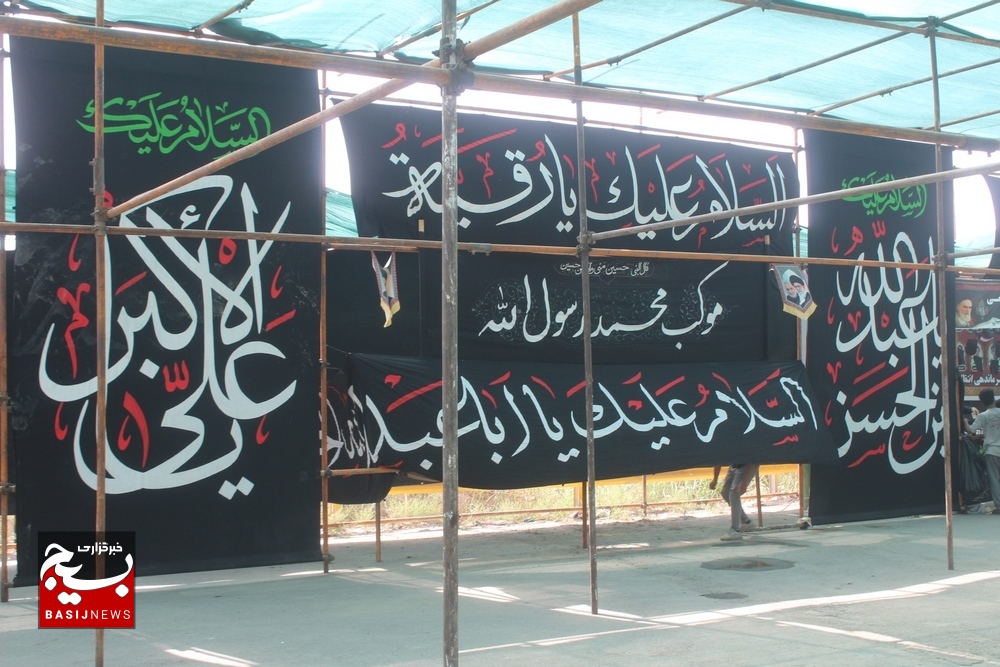 السلام عليك
علي الأكبر
السلام عليك يا رقية
قال النبي حسين مني وأنا من حسين
موكب محمد رسول الله
السَّلامُ عليك يا أبا عبد الله
السلام عليك
يا عبدالله بن الحسن
خبرگزاری
بسیج
BASIJNEWS